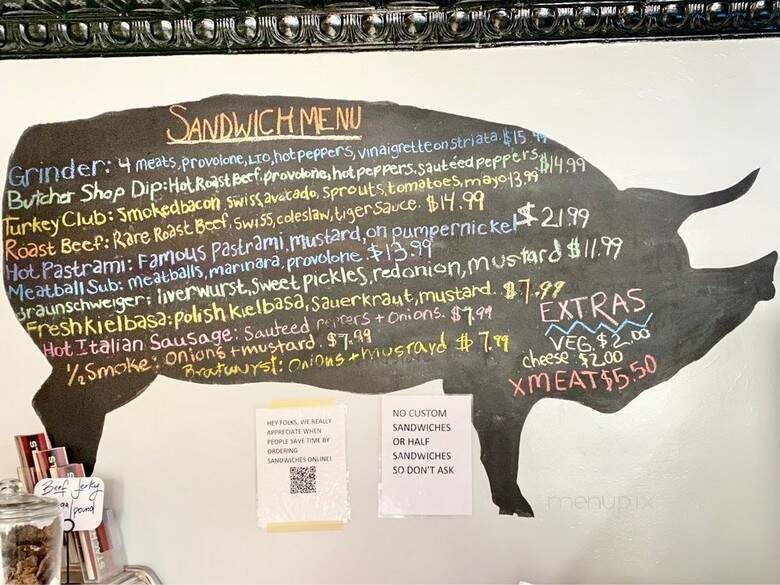 SANDWICH MENU
Grinder: 4 meats, provolone, LTO, hot peppers, vinaigrette on striata. $15.49
Butcher Shop Dip: Hot Roast Beef, provolone, hot peppers, sautéed peppers $14.99
Turkey Club: Smoked bacon, swiss, avocado, Sprouts, tomatoes, mayo 13.99
Roast Beef: Rare Roast Beef, Swiss, coleslaw, tiger Sauce. $14.99
Hot Pastrami: Famous Pastrami, mustard, on pumpernickel $21.99
Meatball Sub: meatballs, marinara, provolone $13.99
Braunschweiger: liverwurst, Sweet pickles, red onion, mustard $11.99
Fresh kielbasa: polish kielbasa, Sauerkraut, mustard. $7.99
Hot Italian Sausage: Sauteed peppers + Onions. $7.99
1/2 Smoke: Onions + mustard. $7.99
Bratwurst: Onions + mustard $7.99
EXTRAS
VEG $2.00
cheese $2.00
X MEAT $5.50
HEY FOLKS, WE REALLY
APPRECIATE WHEN
PEOPLE SAVE TIME BY
ORDERING
SANDWICHES ONLINE!
NO CUSTOM
SANDWICHES
OR HALF
SANDWICHES
SO DON'T ASK
Beef Jerky
/pound
menupix